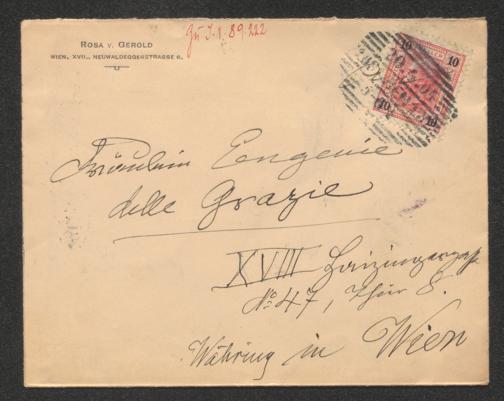 Rosa v. Gerold
Wien, XVII., Neuwaldeggerstrasse 6.
Zu I.N. 89.222
10 10
10 10
Fräulein Eugenie
delle Grazie
XVIII Haizingergasse
No 47, Thür 8.
Währing in Wien